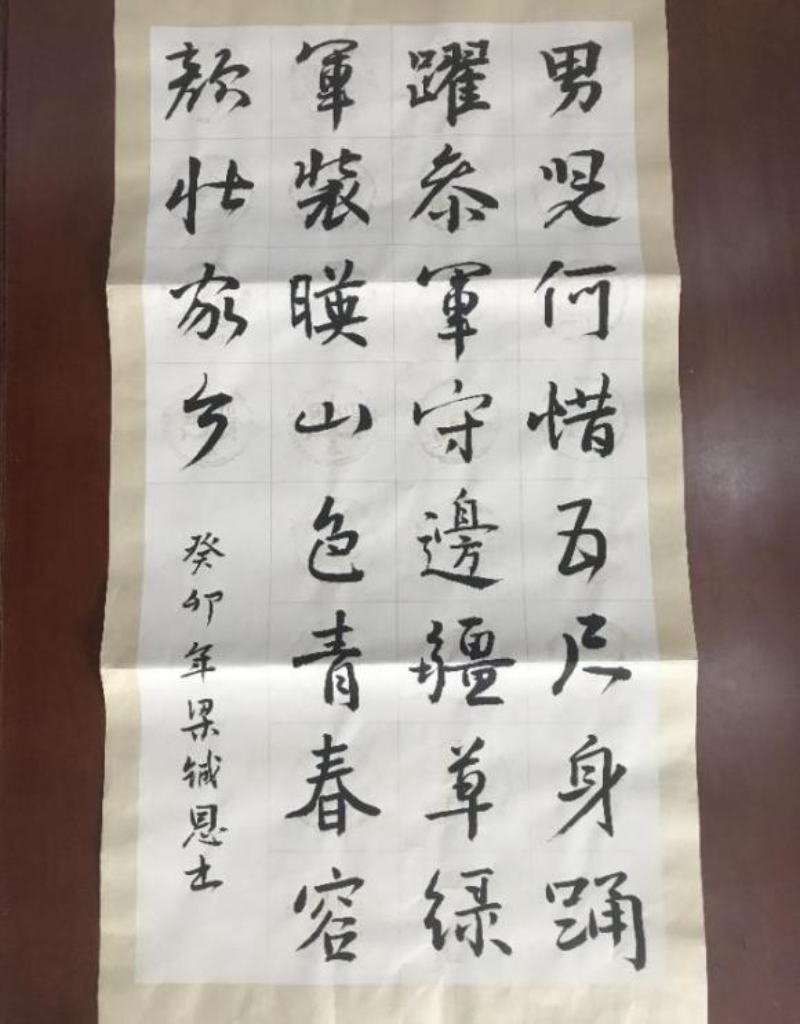 男兒何惜五尺身踊
躍叅軍守邊疆草綠
軍裝暎山色青春容
顏壯家乡
癸卯年梁鍼恩书